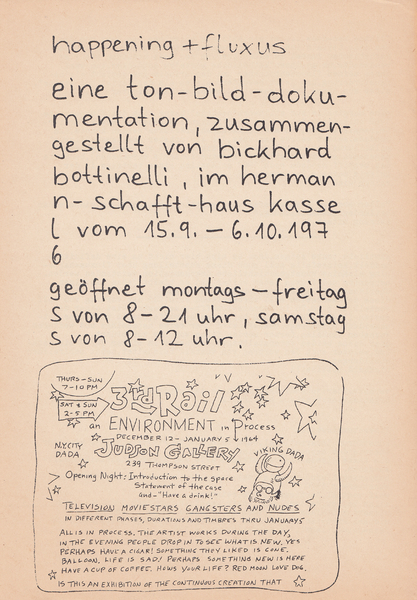 happening + fluxus
eine ton-bild-doku-
mentation, zusammen-
gestellt von bickhard
bottinelli, im herman
n-schafft-haus kasse
l vom 15.9. – 6.10.197
6
geöffnet montags – freitag
s von 8-21 uhr, samstag
s von 8-12 uhr.
THURS-SUN
7-10 PM
SAT & SUN
2-5 PM
3rd Rail
an ENVIRONMENT in Process
DECEMBER 12- JANUARY 5 1964
N.Y.CITY
DADA
JUDSON GALLERY
VIKING DADA
239 THOMPSON STREET
Opening Night: Introduction to the space
Statement of the case
and- "Have a drink!"
TELEVISION MOVIESTARS GANGSTERS AND NUDES
IN DIFFERENT PHASES, DURATIONS AND TIMBRES THRU JANUARY 5
ALL IS IN PROCESS. THE ARTIST WORKS DURING THE DAY,
IN THE EVENING PEOPLE DROP IN TO SEE WHAT IS NEW. YES
PERHAPS HAVE A CIGAR! SOMETHING THEY LIKED IS GONE.
BALLOON, LIFE IS SAD! PERHAPS SOMETHING NEW IS HERE
HAVE A CUP OF COFFEE. HOWS YOUR LIFE? RED MOON LOVE DOG.
IS THIS AN EXHIBITION OF THE CONTINUOUS CREATION THAT